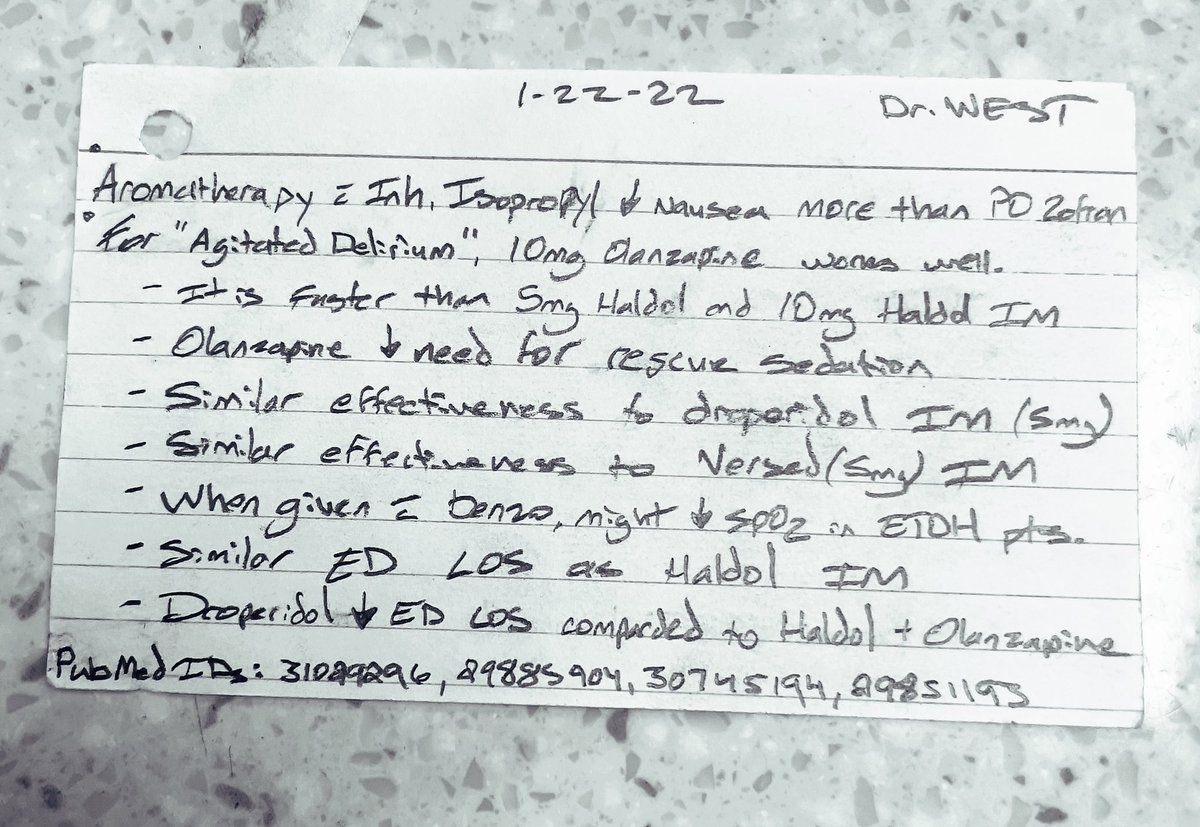 1-22-22 Dr. WEST
• Aromatherapy = Inh. Isopropyl ↓ Nausea more than PO Zofran
• For "Agitated Delirium", 10mg Olanzapine works well.
- It is faster than 5mg Haldol and 10mg Haldol IM
- Olanzapine ↓ need for rescue sedation
- Similar effectiveness to droperidol IM (5mg)
- Similar effectiveness to Versed (5mg) IM
- When given = benzo, might ↓ SpO2 in ETOH pts.
- Similar ED LOS as Haldol IM
- Droperidol ↓ ED LOS comparded to Haldol + Olanzapine
PubMed IDs: 31029296, 29885904, 30745194, 29851193